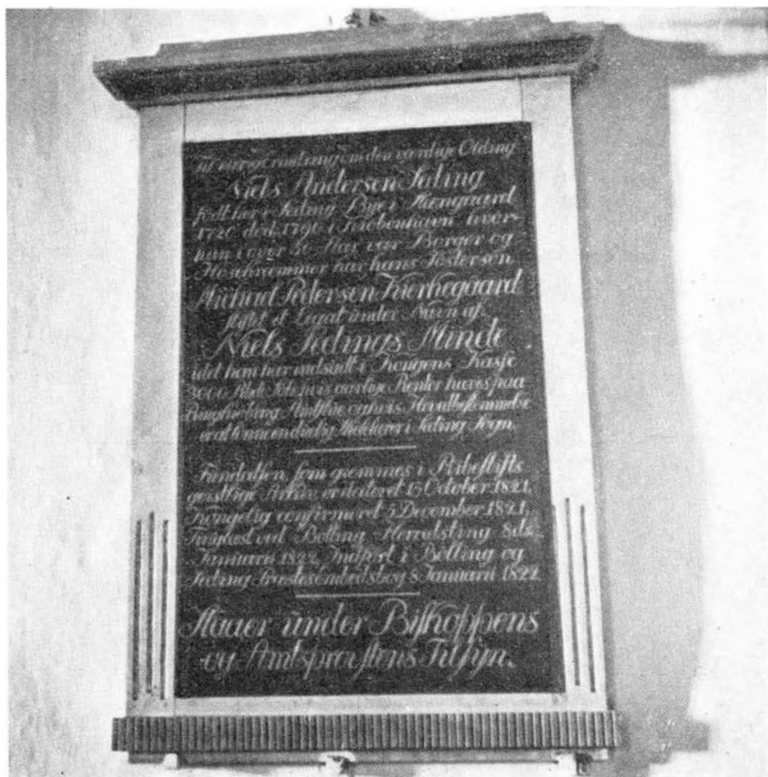 Til ærefuld Erindring om den værdige Olding
Niels Andersen Seding
født her i Seding Byes Kongaard
1720. død 1796 i Kiøbenhavn hvor
han i over 50 Aar var Borger og
Hosekræmmer har hans Søstersøn
Michael Pedersen Kierkegaard
stiftet et Legat under Navn af
Niels Sedings Minde
idet han har indsadt i Kongens Kasse
3000 Rbdlr. hvis aarlige Renter hæves paa
Ringkiøbing Amtstue og hvis Hovedbestemmelse
er at lønne en duelig Skolelærer i Seding Sogn.
Fundatsen, som giemmes i Ribestifts
geistlige Arkiv er dateret 15 October 1821,
Kongelig confirmeret 5 December 1821,
Tinglæst ved Bølling Herredsting 8de
Januarii 1822 Indført i Bølling og
Seding Præsteembedsbog 8 Januarii 1822
Staaer under Biskoppens
og Amtsprovstens Tilsyn.